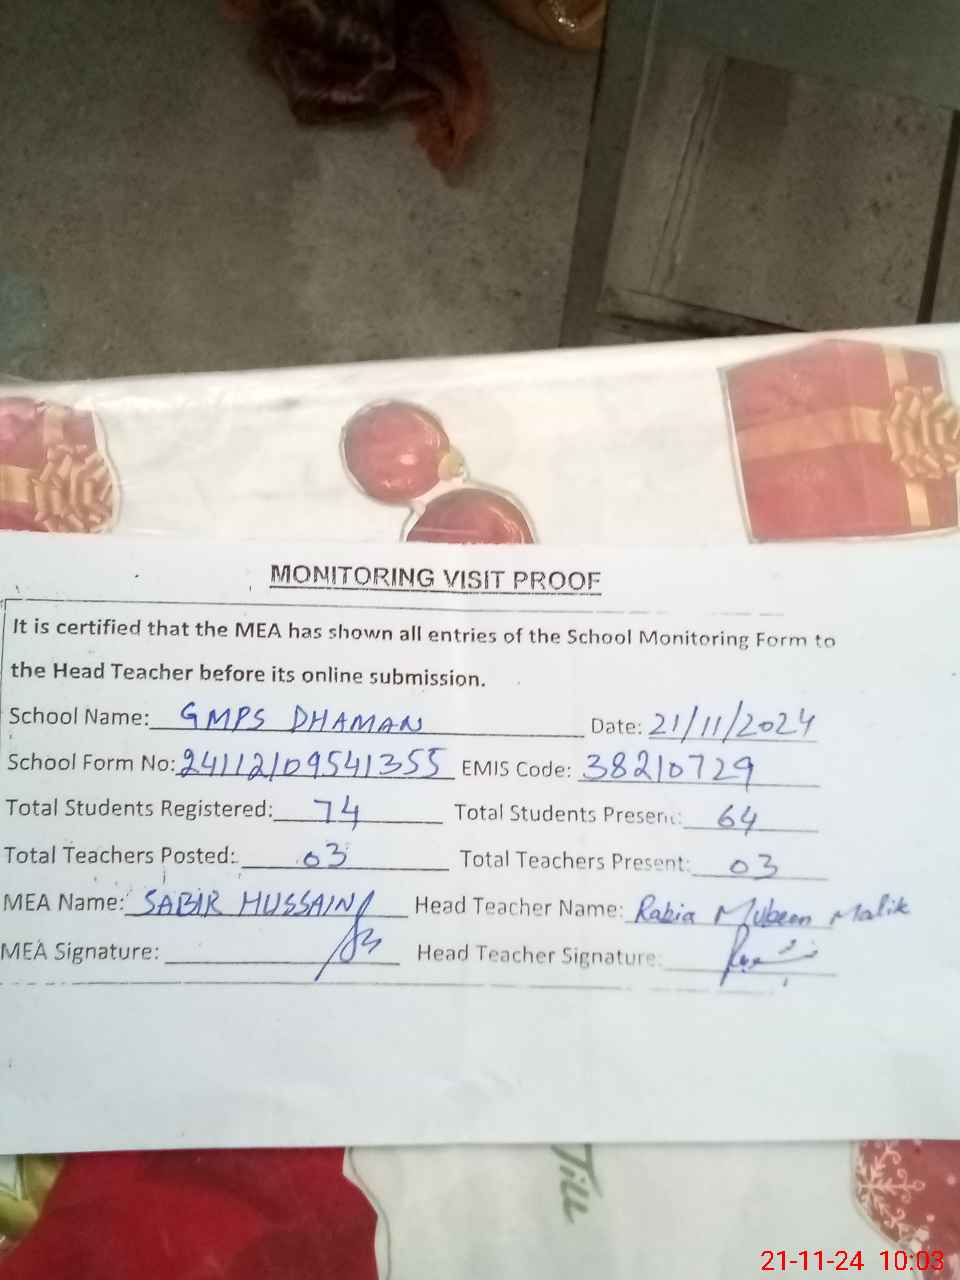 MONITORING VISIT PROOF
It is certified that the MEA has shown all entries of the School Monitoring Form to
the Head Teacher before its online submission.
School Name: GMPS DHAMAN Date: 21/11/2024
School Form No: 24112109541355 EMIS Code: 38210729
Total Students Registered: 74 Total Students Present: 64
Total Teachers Posted: 03 Total Teachers Present: 03
MEA Name: SABIR HUSSAIN Head Teacher Name: Rabia Mubeen Malik
MEA Signature: Head Teacher Signature:
Till
21-11-24 10:03